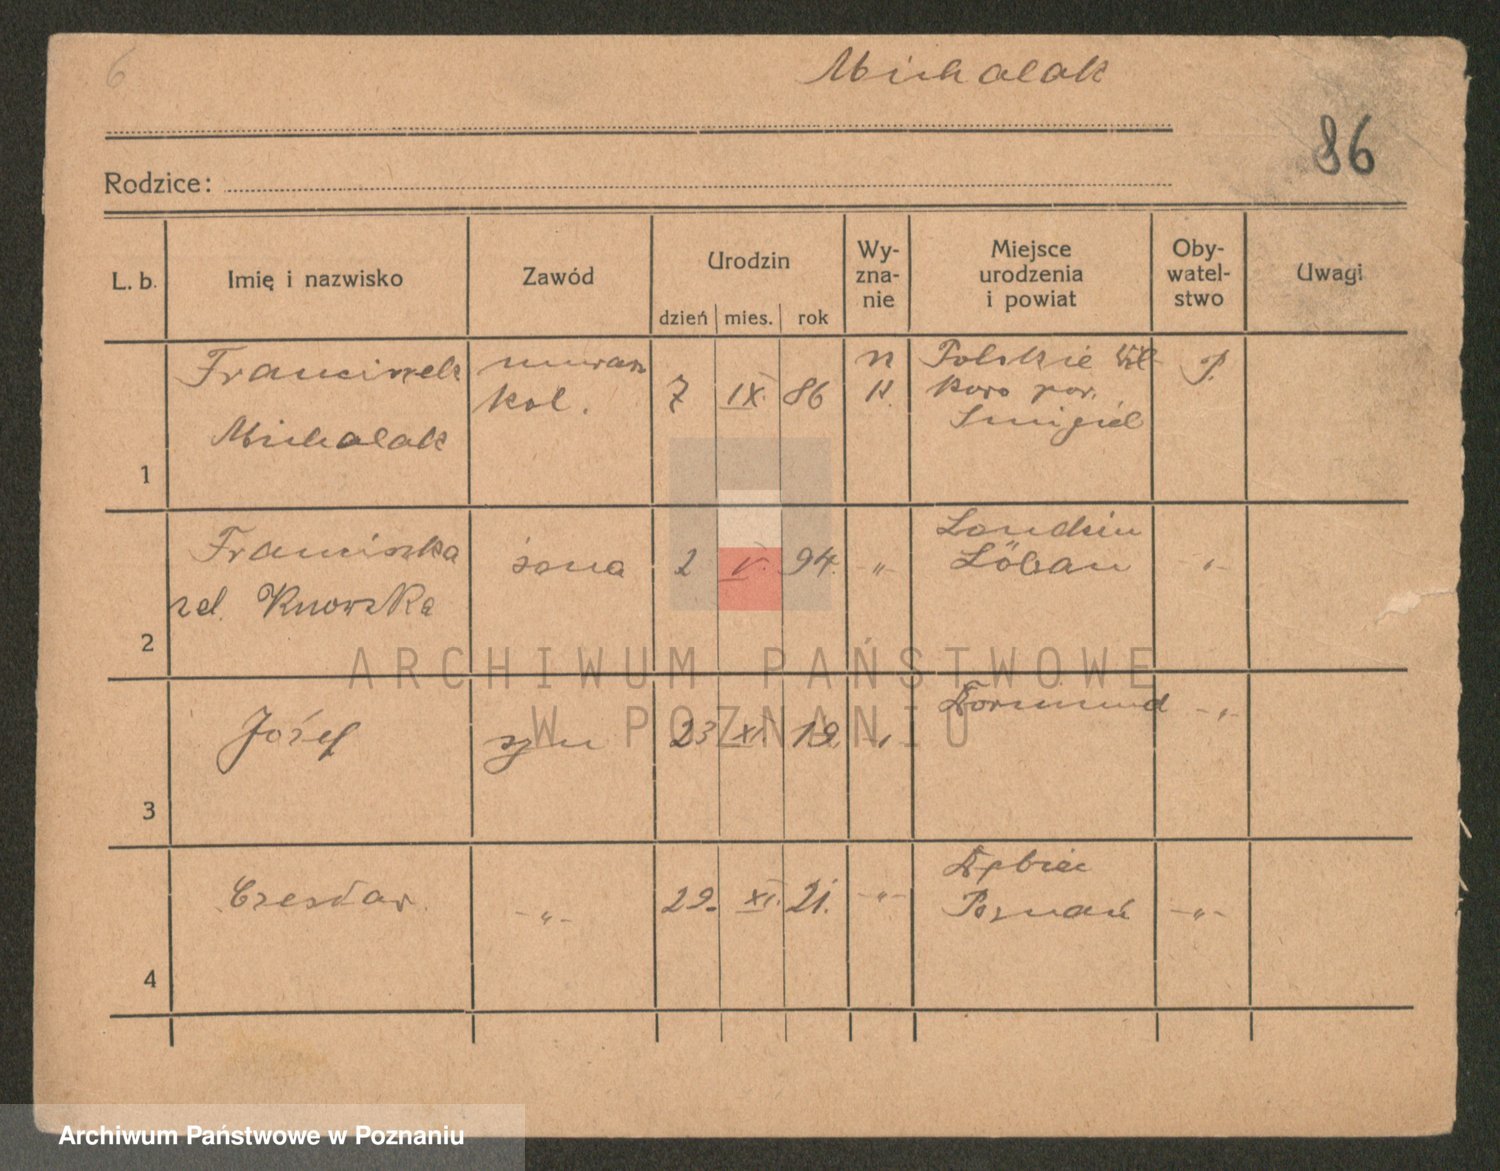 6
Michalak
86
Rodzice:
L. b. Imię i nazwisko Zawód Urodzin dzień mies. rok Wy- zna- nie Miejsce urodzenia i powiat Oby- watel- stwo Uwagi
Franciszek murarz
kol. 7 IX. 86 Polskie Wil-
kowo pow.
Śmigiel p.
Michalak
1
Franciszka żona 2 V. 94. -„- Londzin
Löbau -„-
zd. Knowska
2
ARCHIWUM PAŃSTWOWE
W POZNANIU
Józef syn 23 XI 19. „ Dortmund -„-
3
Czesław -„- 29. XI. 21. -„- Dębiec
Poznań -„-
4
Archiwum Państwowe w Poznaniu